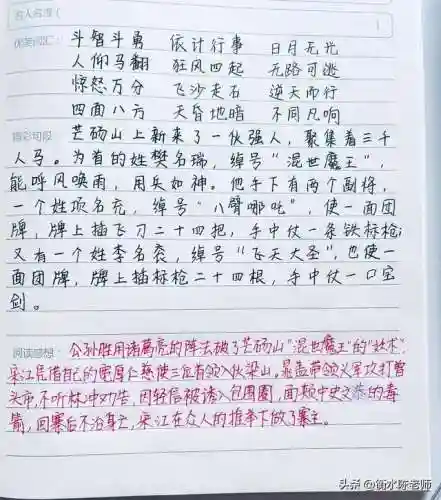 名人名言（
优美词汇： 斗智斗勇 依计行事 日月无光
人仰马翻 狂风四起 无路可逃
惊怒万分 飞沙走石 逆天而行
四面八方 天昏地暗 不同凡响
精彩句段 芒砀山上新来了一伙强人，聚集着三千
人马。为首的姓樊名瑞，绰号“混世魔王”，
能呼风唤雨，用兵如神。他手下有两个副将，
一个姓项名充，绰号“八臂哪吒”，使一面团
牌，牌上插飞刀二十四把，手中仗一条铁标枪；
又有一个姓李名衮，绰号“飞天大圣”，也使一
面团牌，牌上插标枪二十四根，手中仗一口宝
剑。
阅读感想： 公孙胜用诸葛亮的阵法破了芒砀山“混世魔王”的“妖术”，
宋江凭借自己的宽厚仁慈使三位首领入伙梁山。晁盖带领义军攻打曾
头市，不听林冲劝告，因轻信被诱入包围圈，面颊中史文恭的毒
箭，回寨后不治身亡，宋江在众人的推举下做了寨主。
头条 @衡水陈老师